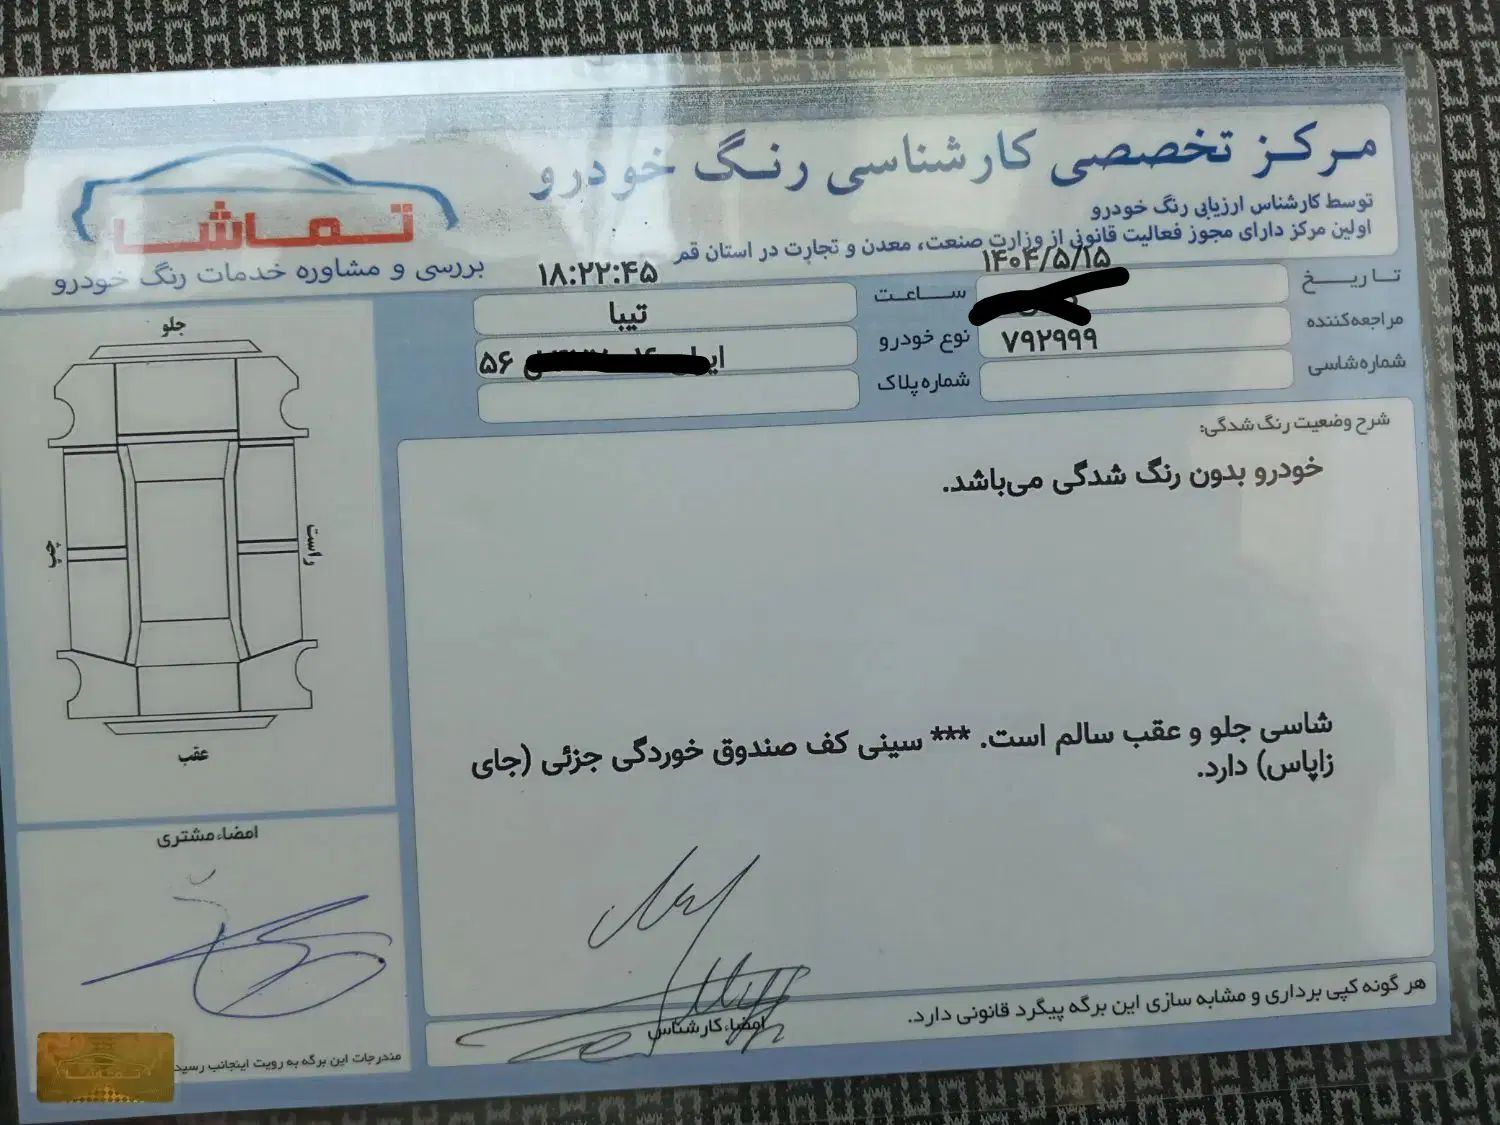 مرکز تخصصی کارشناسی رنگ خودرو
توسط کارشناس ارزیابی رنگ خودرو
اولین مرکز دارای مجوز فعالیت قانونی از وزارت صنعت، معدن و تجارت در استان قم
تماشا
بررسی و مشاوره خدمات رنگ خودرو
تاریخ ۱۴۰۴/۵/۱۵
ساعت ۱۸:۲۲:۴۵
مراجعه‌کننده
نوع خودرو تیبا
شماره شاسی ۷۹۲۹۹۹
شماره پلاک ۵۶
شرح وضعیت رنگ شدگی:
خودرو بدون رنگ شدگی می‌باشد.
شاسی جلو و عقب سالم است. *** سینی کف صندوق خوردگی جزئی (جای
زاپاس) دارد.
جلو
راست
چپ
عقب
امضاء مشتری
مندرجات این برگه به رویت اینجانب رسید
امضاء کارشناس
هر گونه کپی برداری و مشابه سازی این برگه پیگرد قانونی دارد.
تماشا